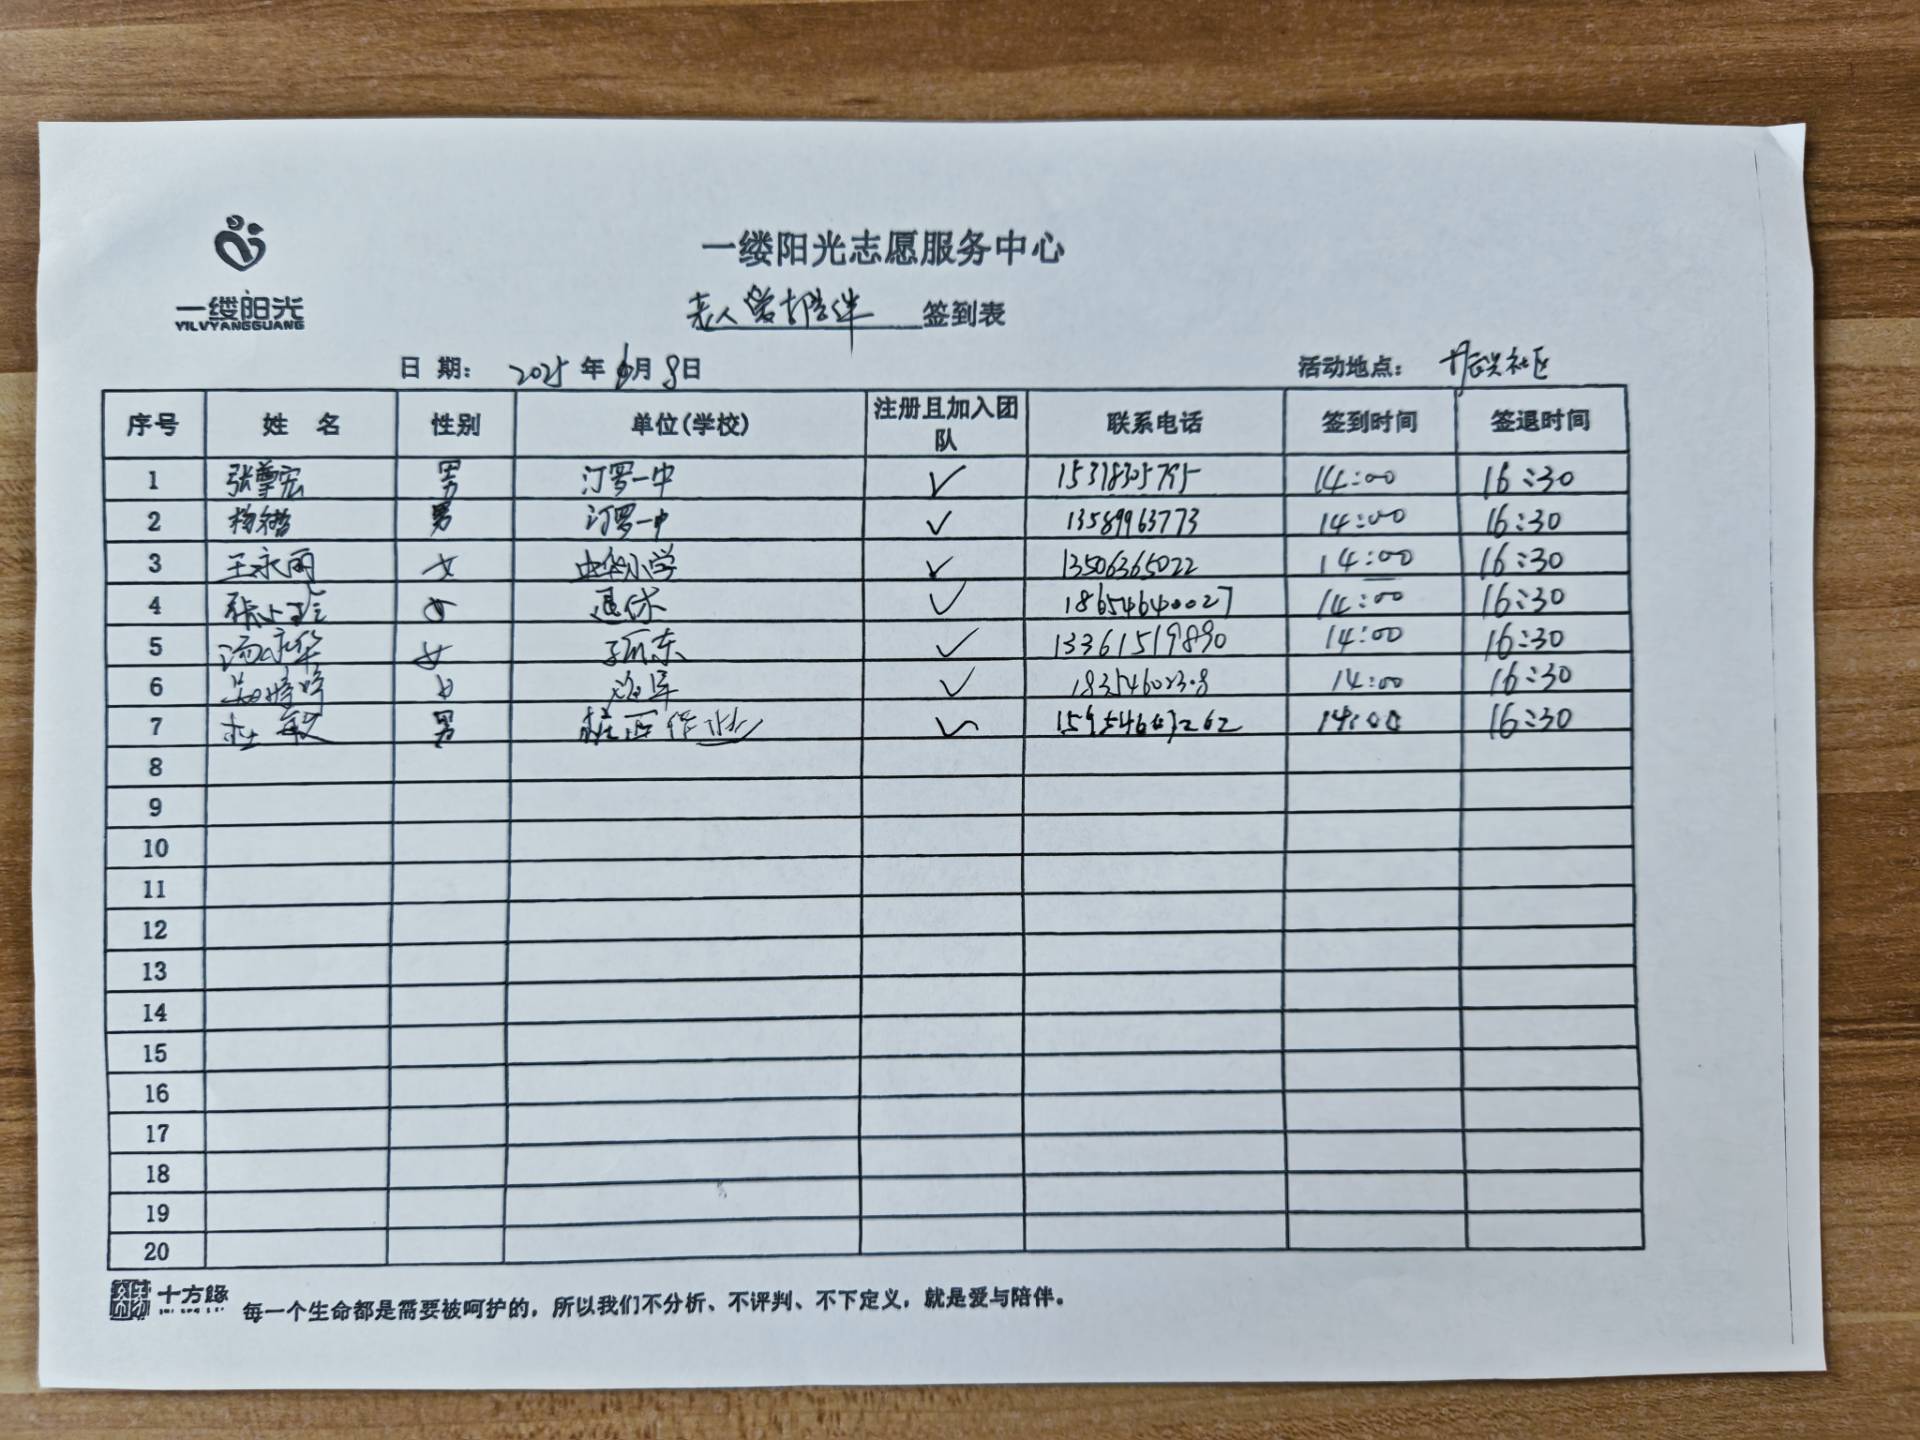 一缕阳光
YILVYANGGUANG
一缕阳光志愿服务中心
老人 签到表
日 期: 2025 年 6月 8日 活动地点: 社区
序号 姓 名 性别 单位(学校) 注册且加入团队 联系电话 签到时间 签退时间
1 张 宏 男 汀罗一中 ✓ 15318305795 14:00 16:30
2 杨 男 汀罗一中 ✓ 13589963773 14:00 16:30
3 王永丽 女 小学 ✓ 13506365022 14:00 16:30
4 张 女 退休 ✓ 18654640027 14:00 16:30
5 汤 华 女 孤东 ✓ 13361519890 14:00 16:30
6 婷婷 女 ✓ 14:00 16:30
7 杜 敏 男 桩西作业 ✓ 14:00 16:30
8
9
10
11
12
13
14
15
16
17
18
19
20
十方缘 每一个生命都是需要被呵护的，所以我们不分析、不评判、不下定义，就是爱与陪伴。